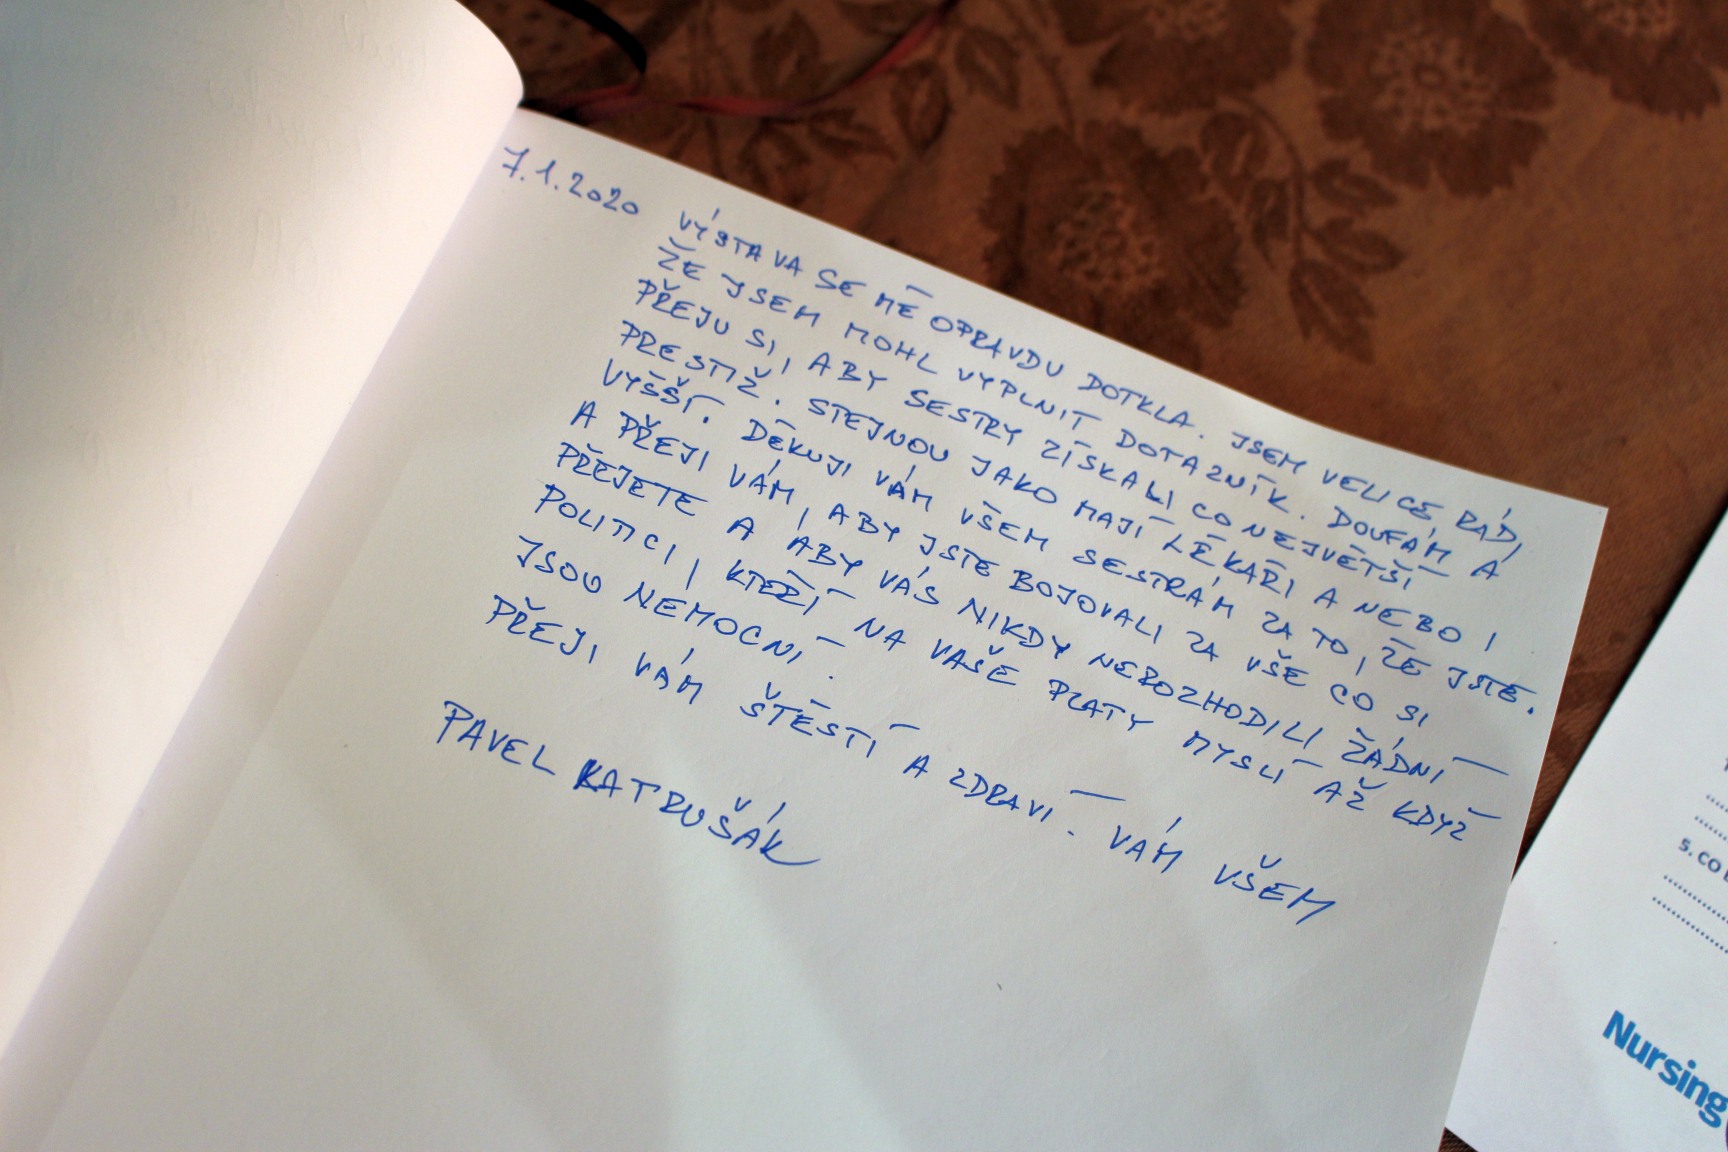 7.1.2020 VÝSTAVA SE MĚ OPRAVDU DOTKLA. JSEM VELICE RÁD,
ŽE JSEM MOHL VYPLNIT DOTAZNÍK. DOUFÁM A
PŘEJU SI, ABY SESTRY ZÍSKALI CO NEJVĚTŠÍ
PRESTIŽ. STEJNOU JAKO MAJÍ LÉKAŘI A NEBO I
VYŠŠÍ. DĚKUJI VÁM VŠEM SESTRÁM ZA TO, ŽE JSTE.
A PŘEJI VÁM, ABY JSTE BOJOVALI ZA VŠE CO SI
PŘEJETE A ABY VÁS NIKDY NEROZHODILI ŽÁDNÍ
POLITICI, KTEŘÍ NA VAŠE PLATY MYSLÍ AŽ KDYŽ
JSOU NEMOCNÍ.
PŘEJI VÁM ŠTĚSTÍ A ZDRAVÍ. VÁM VŠEM
PAVEL KATRUŠÁK
5. CO
Nursing